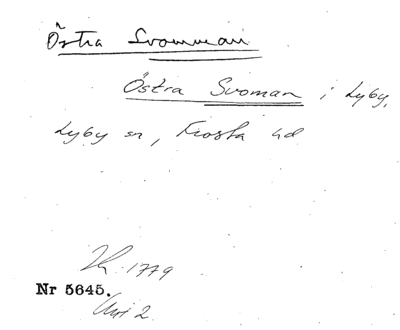 Östra Svomman
Östra Svoman i Lyby,
Lyby sn, Frosta hd
1779
Nr 5645.
2